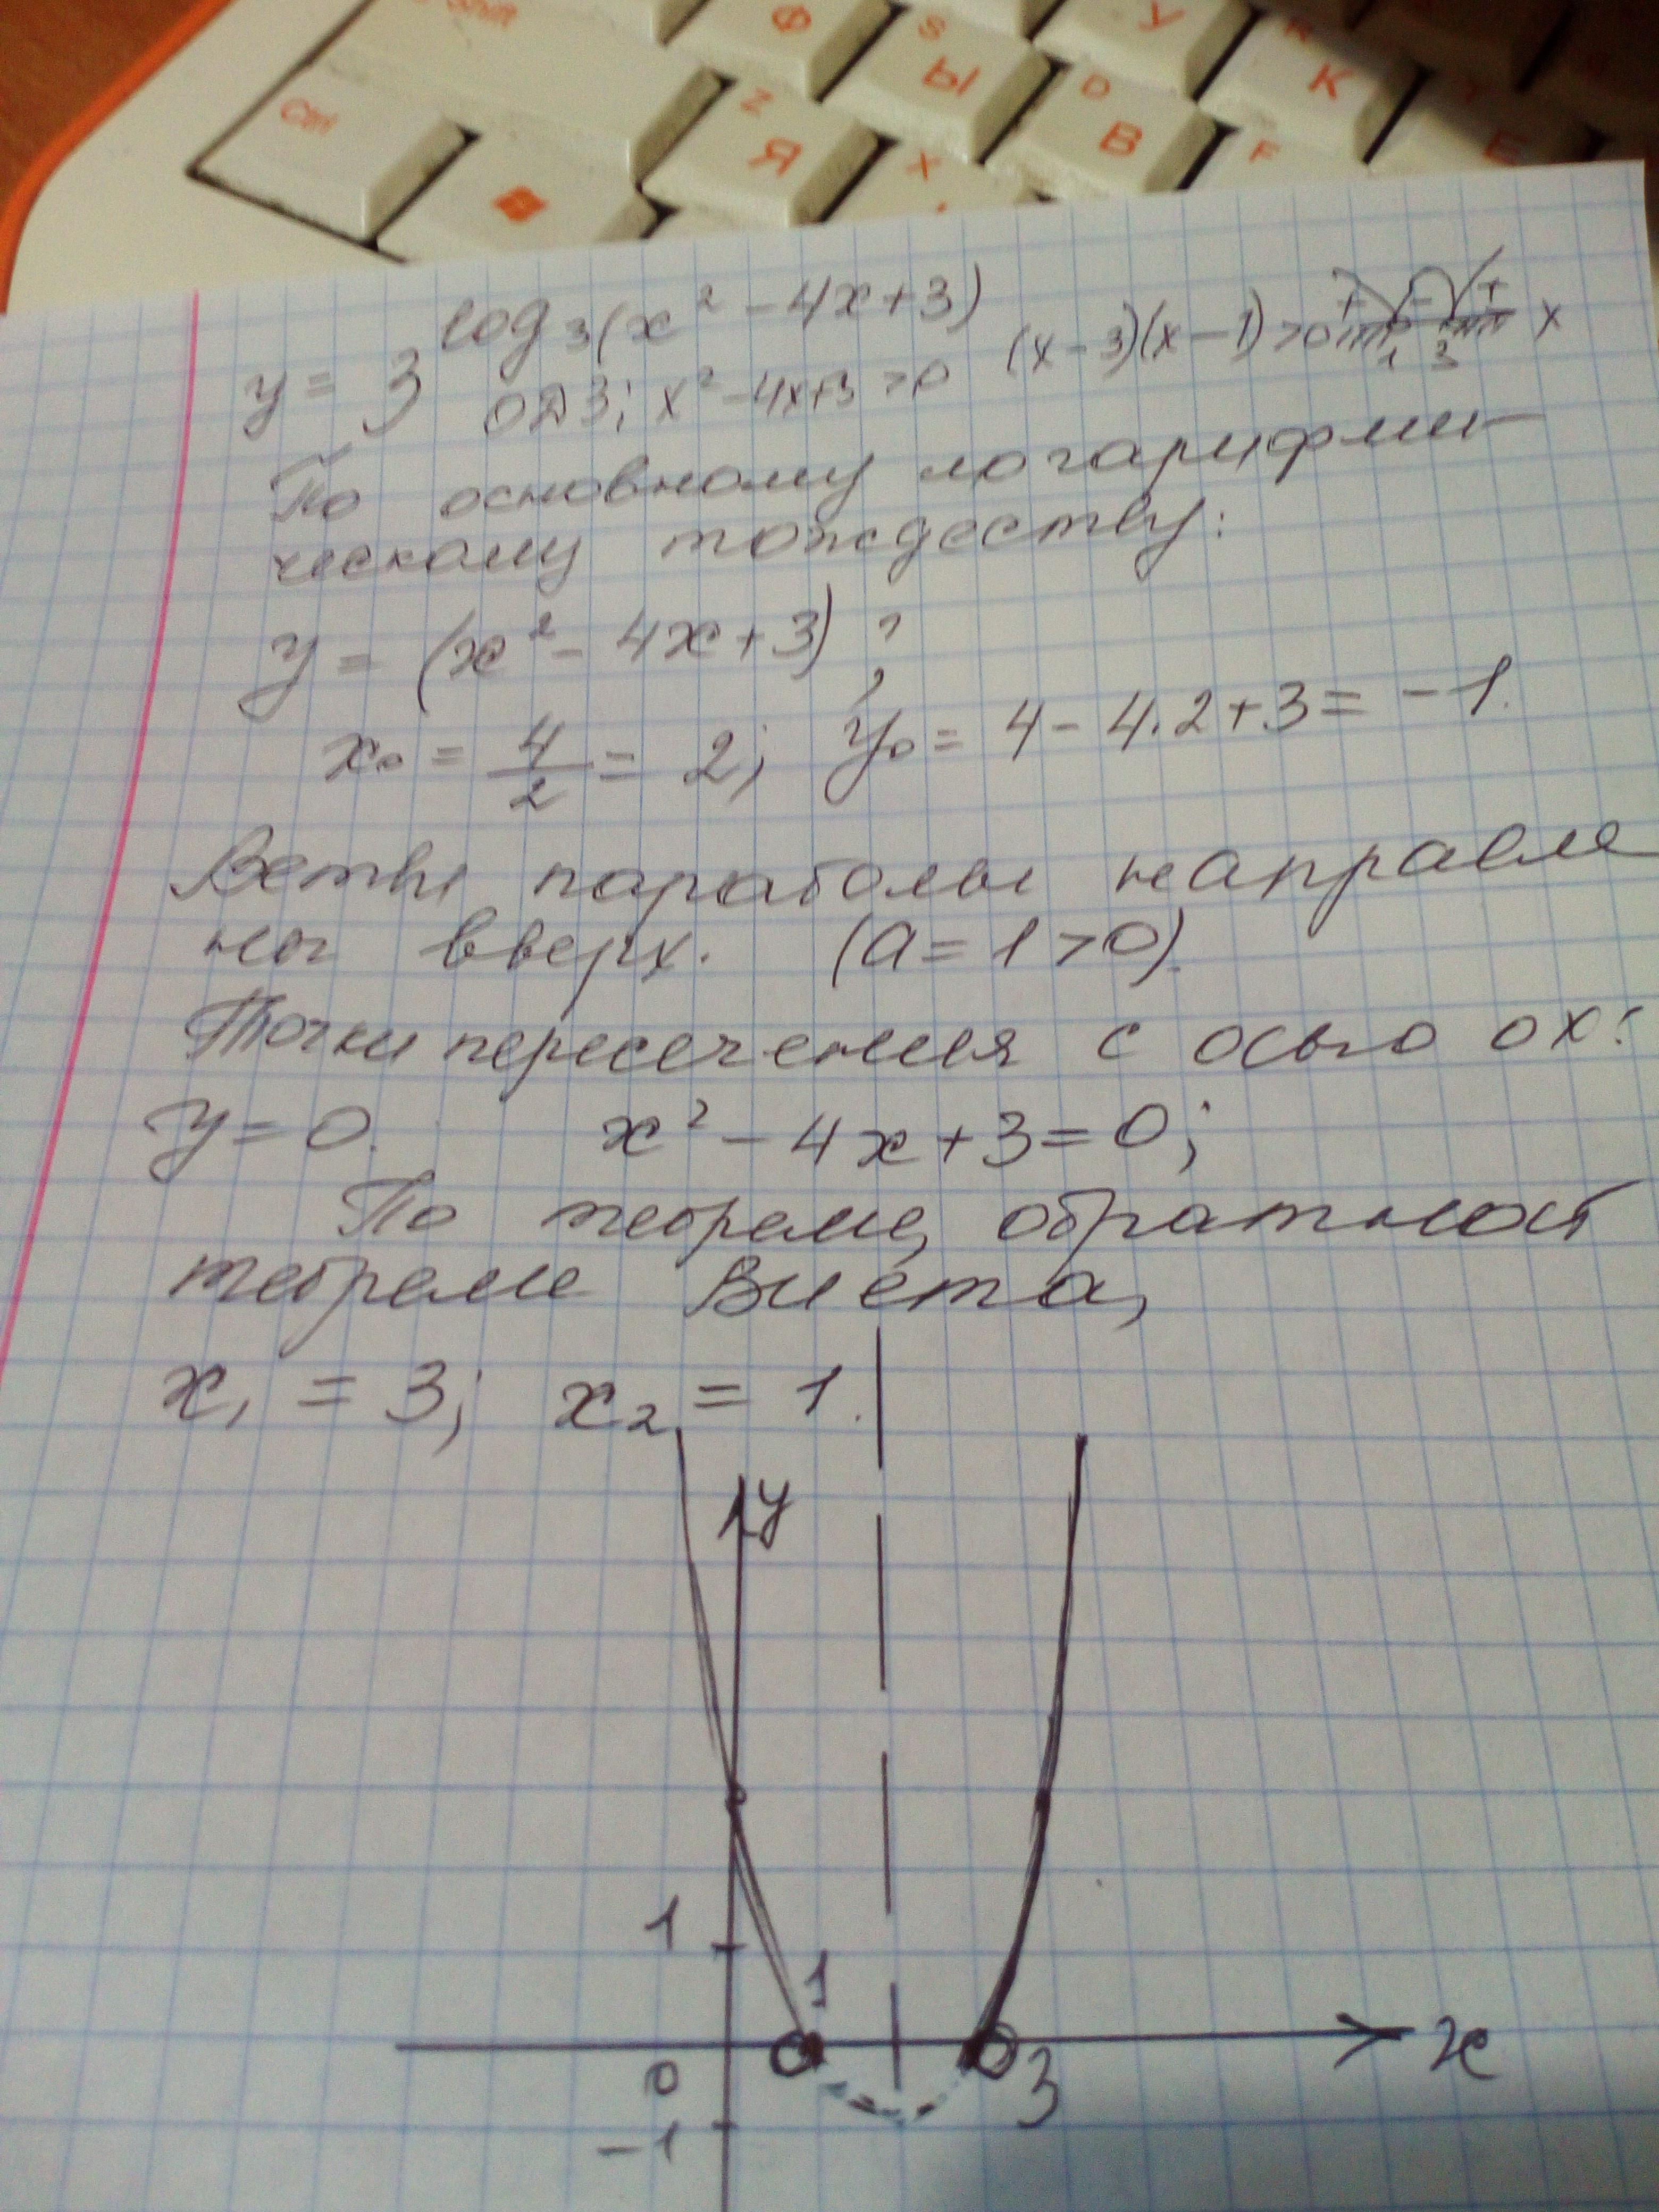 Shift
Ф S Ы У R К
Ctrl Z Я X D В F Е
y = 3^log₃(x² - 4x + 3)
ОДЗ: x² - 4x + 3 > 0 (x - 3)(x - 1) > 0 + - + 1 3 x
По основному логарифми-
ческому тождеству:
y = (x² - 4x + 3)
x₀ = 4/2 = 2; y₀ = 4 - 4·2 + 3 = -1.
Ветви параболы направле
ны вверх. (a = 1 > 0).
Точки пересечения с осью ox:
y = 0. x² - 4x + 3 = 0;
По теореме, обратной
теореме Виета,
x₁ = 3; x₂ = 1.
y
1
1
x
0 3
-1